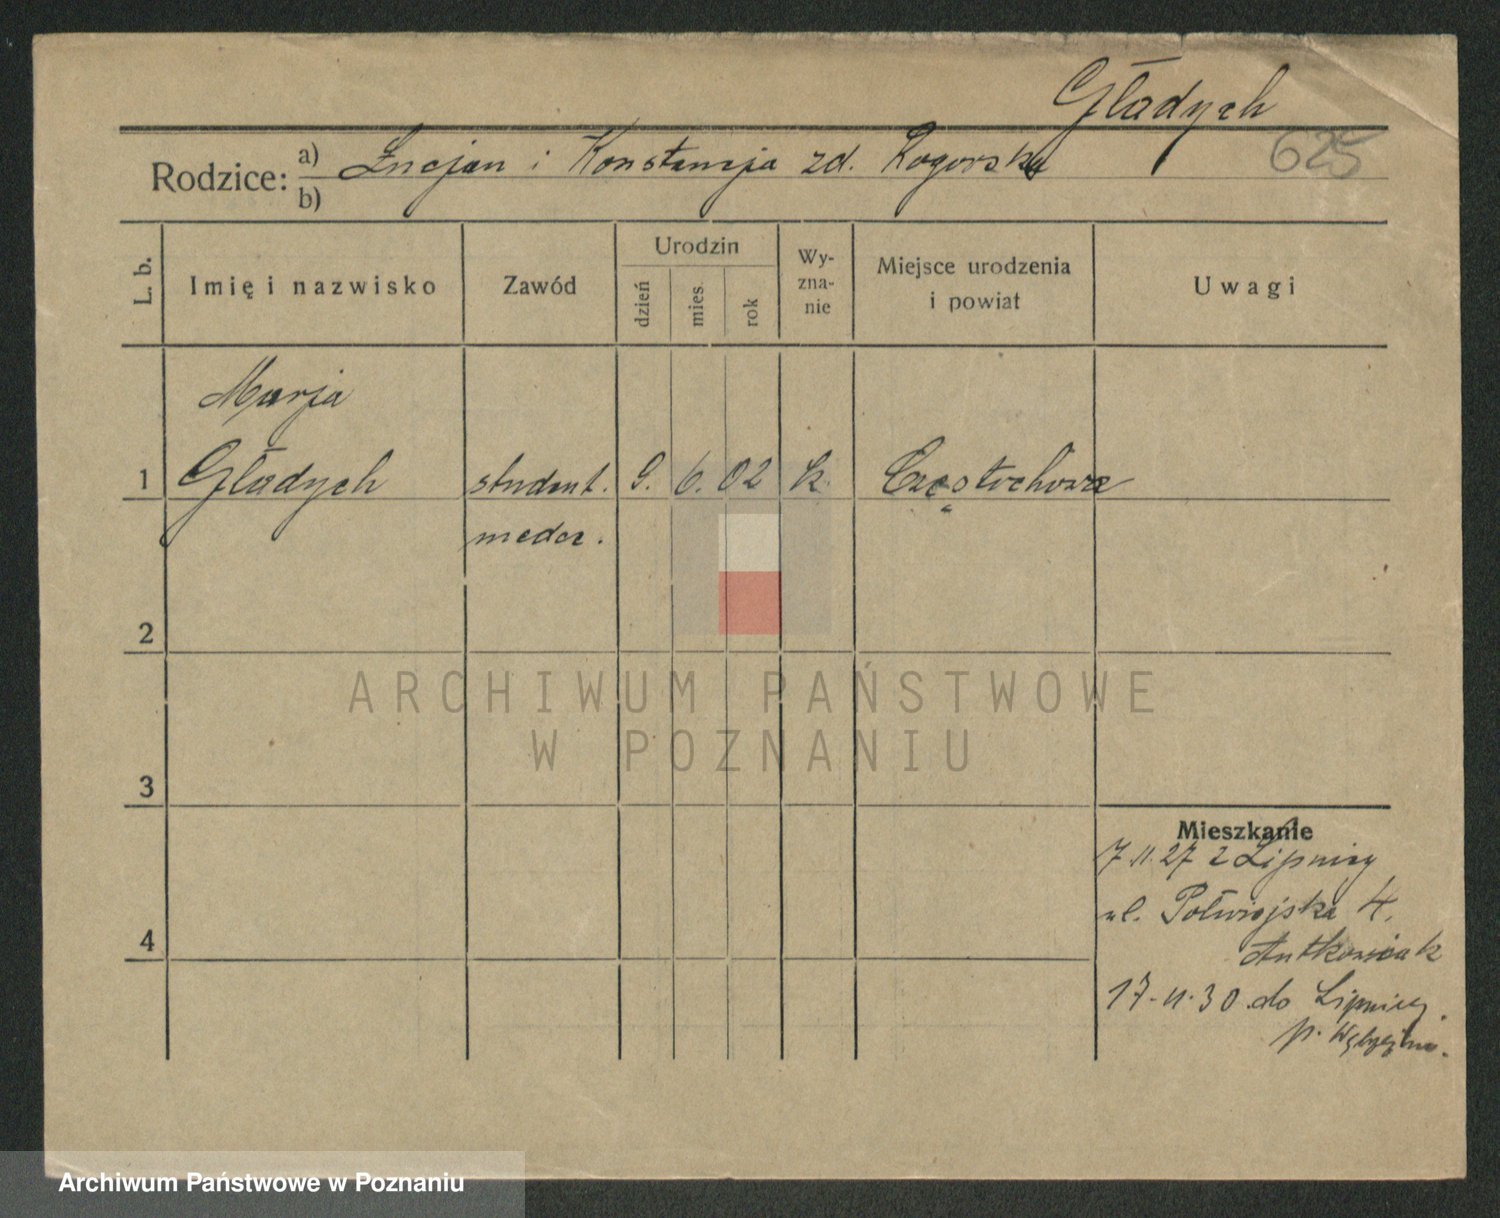 Gładych
625
Rodzice: a) Lucjan i Konstancja zd. Rogorska
b)
L. b. Imię i nazwisko Zawód Urodzin dzień mies. rok Wy-zna-nie Miejsce urodzenia i powiat Uwagi
Marja
1 Gładych student. 9. 6. 02 k. Częstochowa
medec.
2
ARCHIWUM PAŃSTWOWE
W POZNANIU
3
Mieszkanie
7.11.27 z Lipnicy
ul. Półwiejska 4.
4
Antkowiak
17.11.30 do Lipnicy.
p.
Archiwum Państwowe w Poznaniu